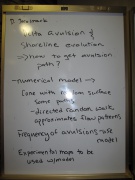 Delta avulsion &
Shoreline evolution
→ How to get avulsion
path?
- numerical model →
Cone with random surface
some
- directed random walk
approximates flow patterns
Frequency of avulsions → use
model
Experimental maps to be
used w/model